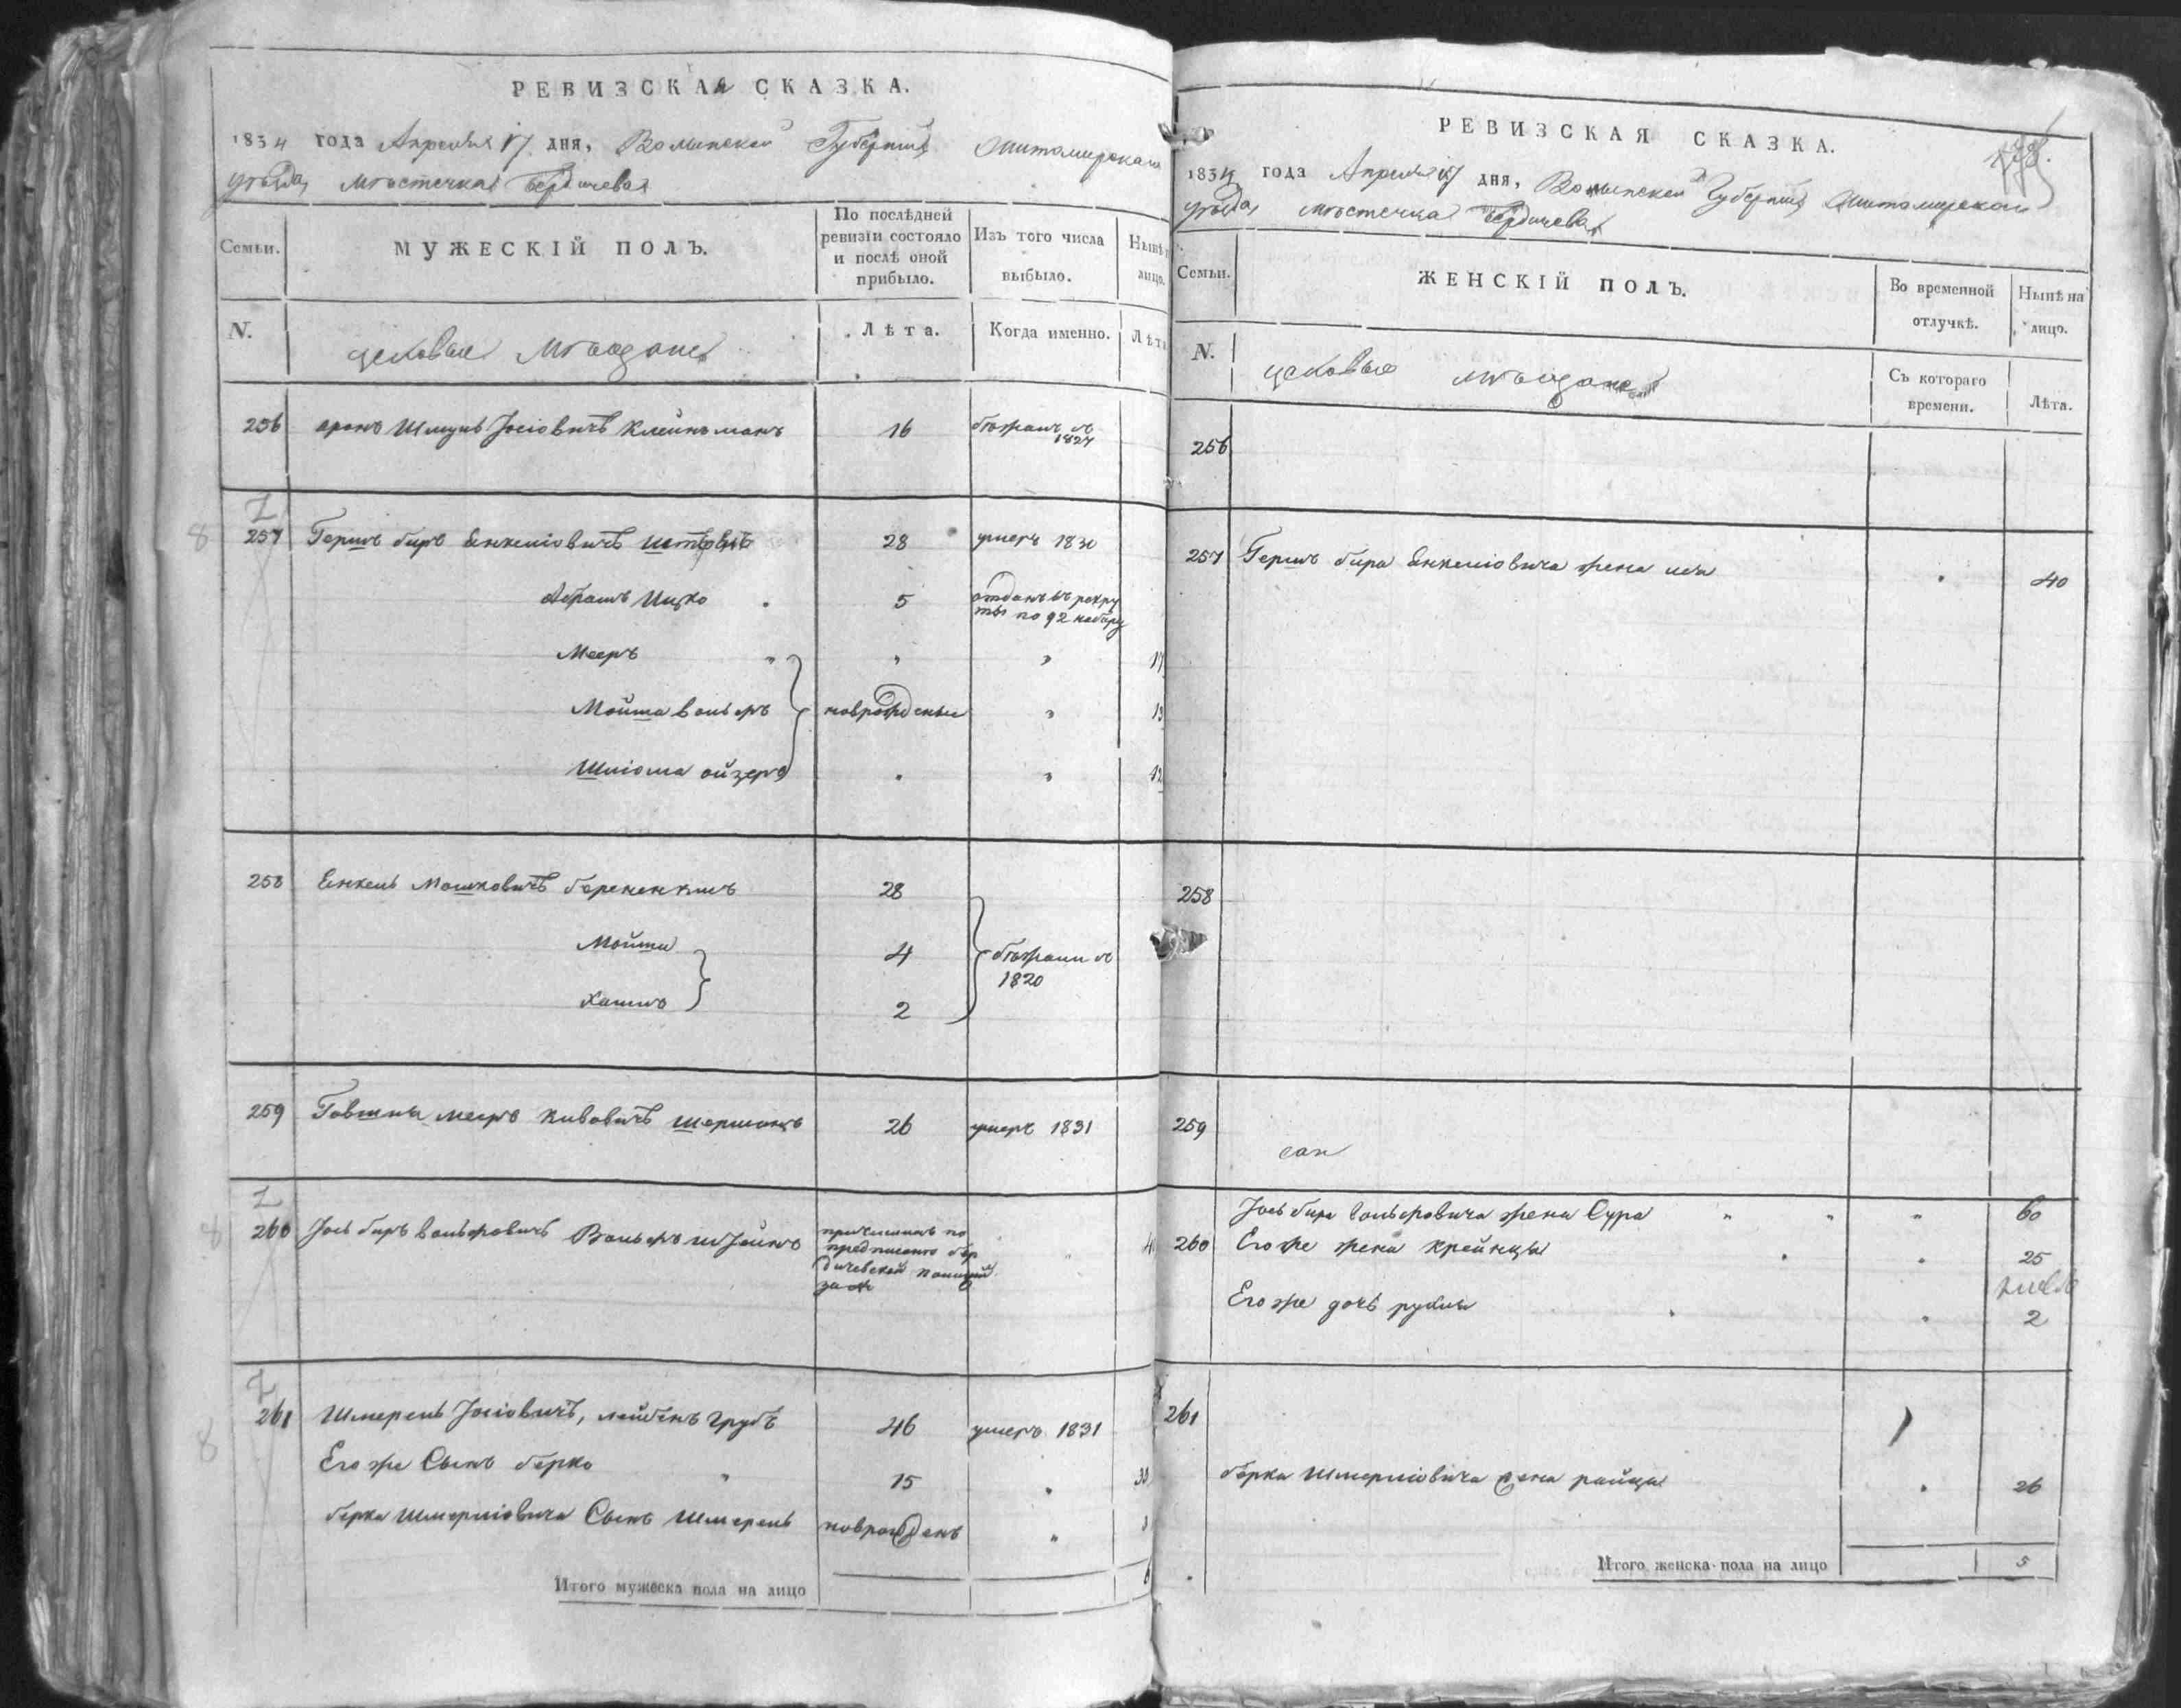 РЕВИЗСКАЯ СКАЗКА.
1834 года Апреля 17 дня, Волынской Губернии Житомирскаго
уѣзда, мѣстечка Бердичева
Семьи.
МУЖЕСКІЙ ПОЛЪ.
По послѣдней
ревизіи состояло
и послѣ оной
прибыло.
Изъ того числа
выбыло.
Нынѣ
лицо.
N.
цеховые Мѣщане
Лѣта.
Когда именно.
Лѣт
256 аронъ Шмуль Јосіовичъ Клейнъманъ 16 бѣжалъ въ
1827
257 Гершъ беръ Енкеліовичъ 28 умеръ 1830
Абрамъ Ицко 5 отданъ въ рекру
ты по 92 набору
Мееръ " " " 17
Мойша вольфъ новрождены " 13
Шліома ойзеръ " " 12
258 Енкель Мошковичъ 28
Мойша 4 бѣжали въ
1820
Хаимъ 2
259 Говшия мееръ кивовичъ 26 умеръ 1831
260 Јось беръ вольфовичъ Вольфъ штейнъ причисленъ по
предписанію бер
дичевской полиціи
за №
261 Шмерель Јосіовичъ, 46 умеръ 1831
Его же Сынъ берко " 15 " 30
берка Шмерліовича Сынъ Шмерель новрожденъ "
Итого мужеска пола на лицо 6
РЕВИЗСКАЯ СКАЗКА.
1834 года Апреля 17 дня, Волынской Губерніи Житомирскаго
уѣзда, мѣстечка Бердичева
Семьи.
ЖЕНСКІЙ ПОЛЪ.
Во временной
отлучкѣ.
Нынѣ на
лицо.
N.
цеховые мѣщане
Съ котораго
времени.
Лѣта.
256
257 Гершъ бера Енкеліовича жена лея 40
258
259
Јось бера вольфовича жена Сура " " " 60
260 Его же жена крейнца 25
Его же дочь рухля 2
261
берка Шмерліовича жена райца 26
Итого женска пола на лицо 5